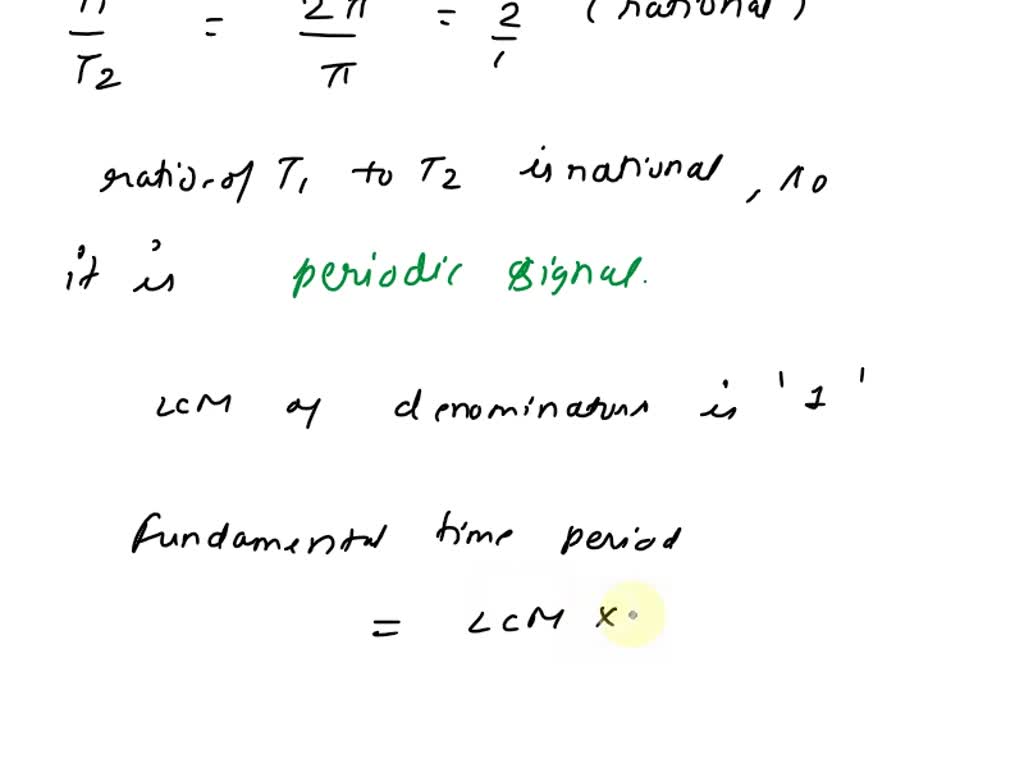 T1/T2 = 2π/π = 2/1 (rational)
ratio of T1 to T2 is rational, so
it is periodic signal.
LCM of denominators is '1'
fundamental time period
= LCM ×